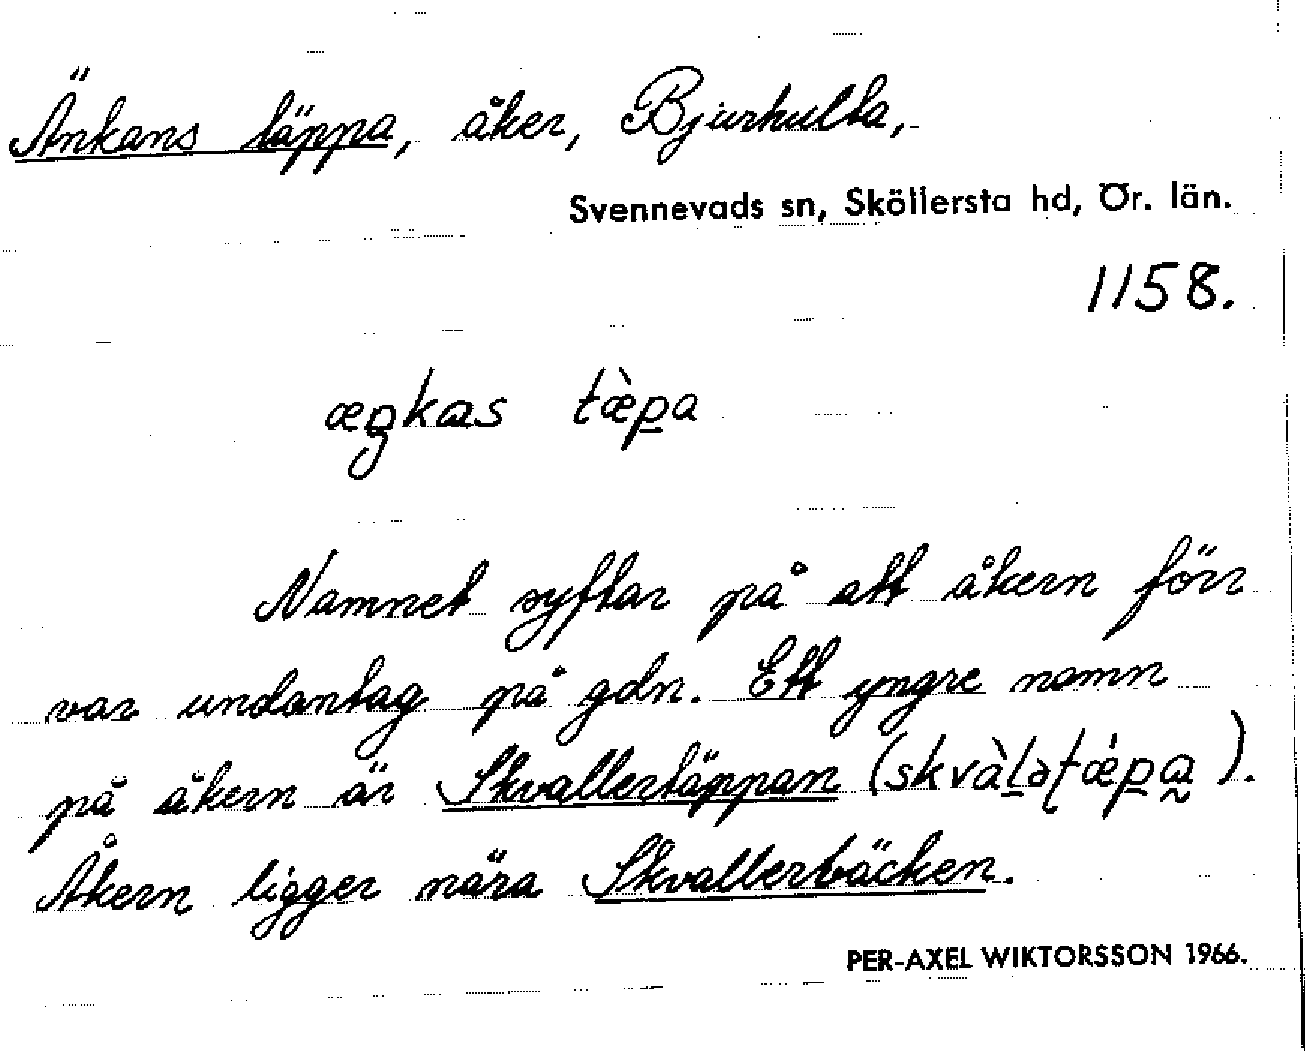 Änkans täppa, åker, Bjurhulta,
Svennevads sn, Sköllersta hd, Ör. län.
1158.
æŋkas tæ̀p̲a
Namnet syftar på att åkern förr
var undantag på gdn. Ett yngre namn
på åkern är Skvallertäppan (skvàl̲əʈǽp̲a̰).
Åkern ligger nära Skvallerbäcken.
PER-AXEL WIKTORSSON 1966.